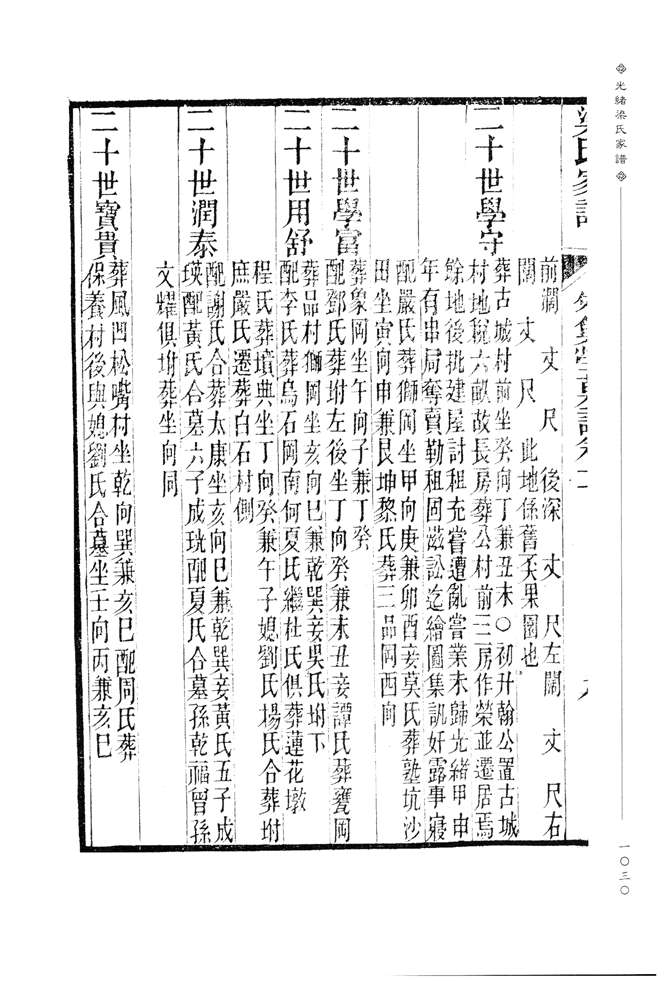 光緒梁氏家譜
一〇三〇
梁氏家譜
前濶 丈 尺 後深 丈 尺左闊 丈 尺右
闊 丈 尺 此地係舊 果園也
二十世學守
葬古城村前坐癸向丁兼丑未〇初升翰公置古城
村地稅六畝故長房葬公村前二三房作榮並遷居焉
餘地後批建屋討租充嘗遭亂嘗業未歸光緒甲申
年有串局奪賣勒租固滋訟迄繪圖集訊奸露事寢
配嚴氏葬獅岡坐甲向庚兼卯酉妾莫氏葬塾坑沙
田坐寅向申兼艮坤黎氏葬三品岡西向
二十世學富
葬象岡坐午向子兼丁癸
配鄧氏葬坿左後坐丁向癸兼未丑妾譚氏葬甕岡
二十世用舒
葬品村獅岡坐亥向巳兼乾巽妾吳氏坿下
配李氏葬烏石岡南何夏氏繼杜氏俱葬蓮花墩
程氏葬墳典坐丁向癸兼午子媳劉氏楊氏合葬坿
庶嚴氏遷葬白石村側
二十世潤泰
配謝氏合葬太康坐亥向巳兼乾巽妾黃氏五子成
瑛配黃氏合墓六子成珖配夏氏合墓孫乾福曾孫
文耀俱坿葬坐向同
二十世寶貫
葬風凹松嘴村坐乾向巽兼亥巳配周氏葬
保養村後與媳劉氏合墓坐壬向丙兼亥巳